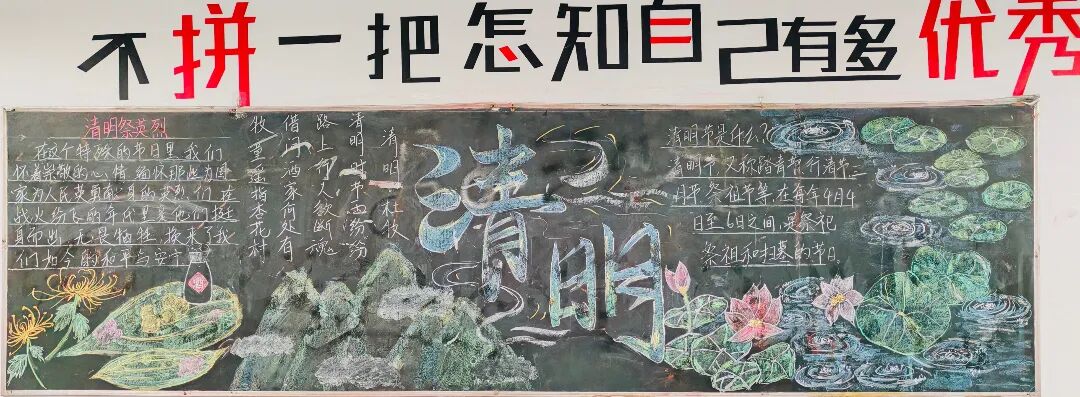 不拼一把怎知自己有多优秀
清明祭英烈
在这个特殊的节日里,我们
怀着崇敬的心情,缅怀那些为国
家为人民英勇献身的英烈们,在
战火纷飞的年代里是他们挺
身而出,无畏牺牲,换来了我
们如今的和平与安宁
清明 杜牧
清明时节雨纷纷
路上行人欲断魂
借问酒家何处有
牧童遥指杏花村
清明
清明节是什么?
清明节,又称踏青节、行清节、三
月节、祭祖节等,在每年4月4
日至6日之间,是祭祀
祭祖和扫墓的节日.